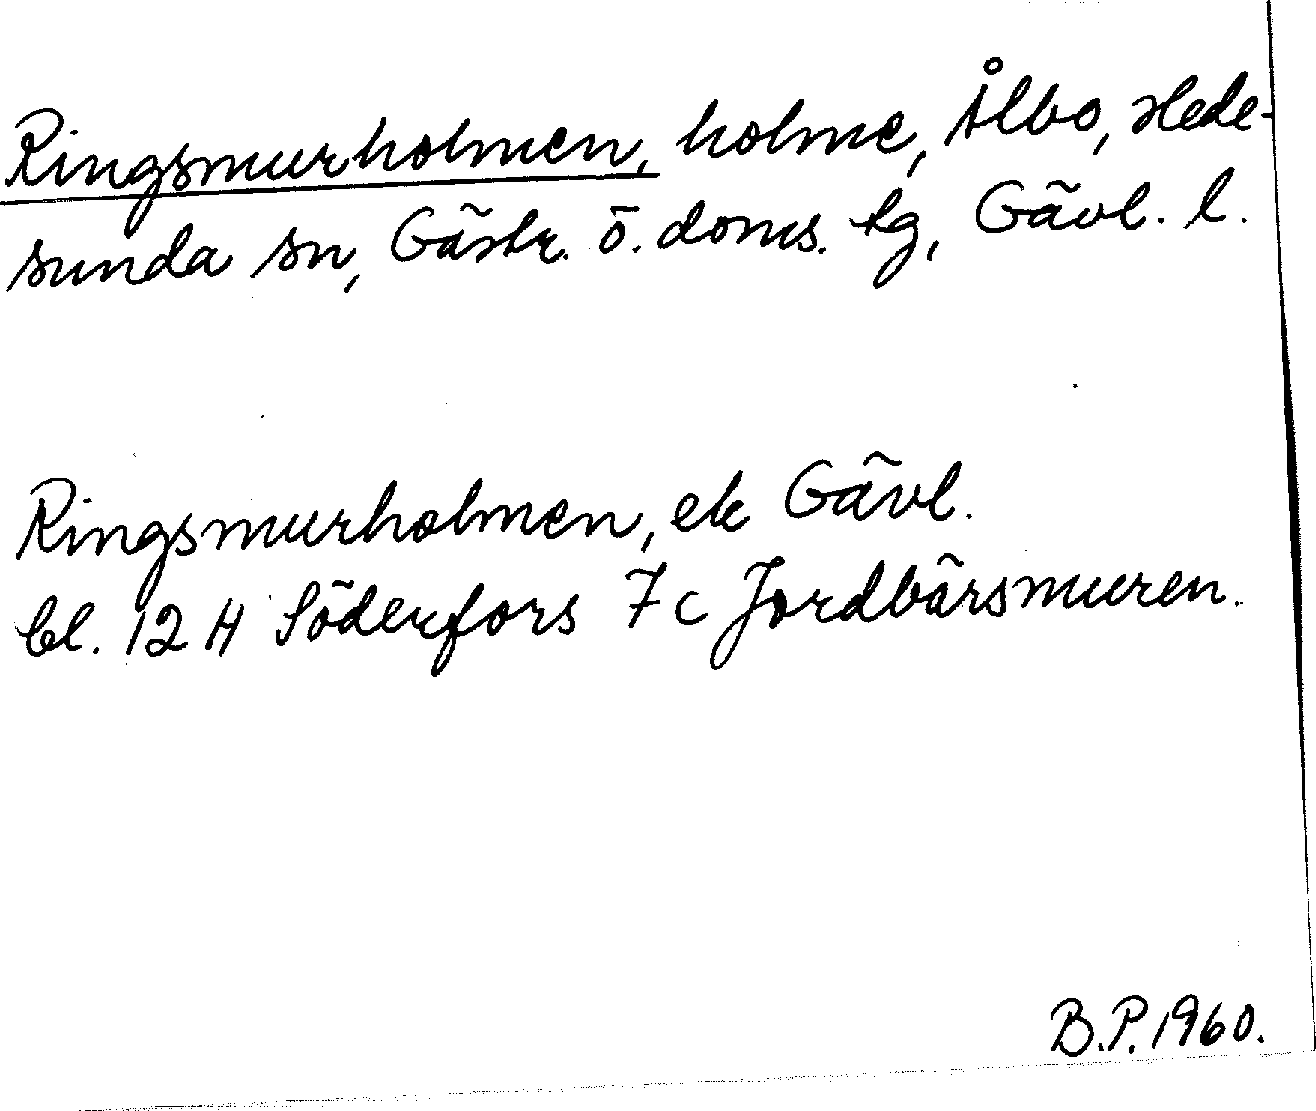 Ringsmurholmen, holme, Ålbo, Hede-
sunda sn, Gästr. ö. doms. tg, Gävl. l.
Ringsmurholmen, ek Gävl.
bl. 12 H Söderfors 7c Jordbärsmuren.
B.P. 1960.